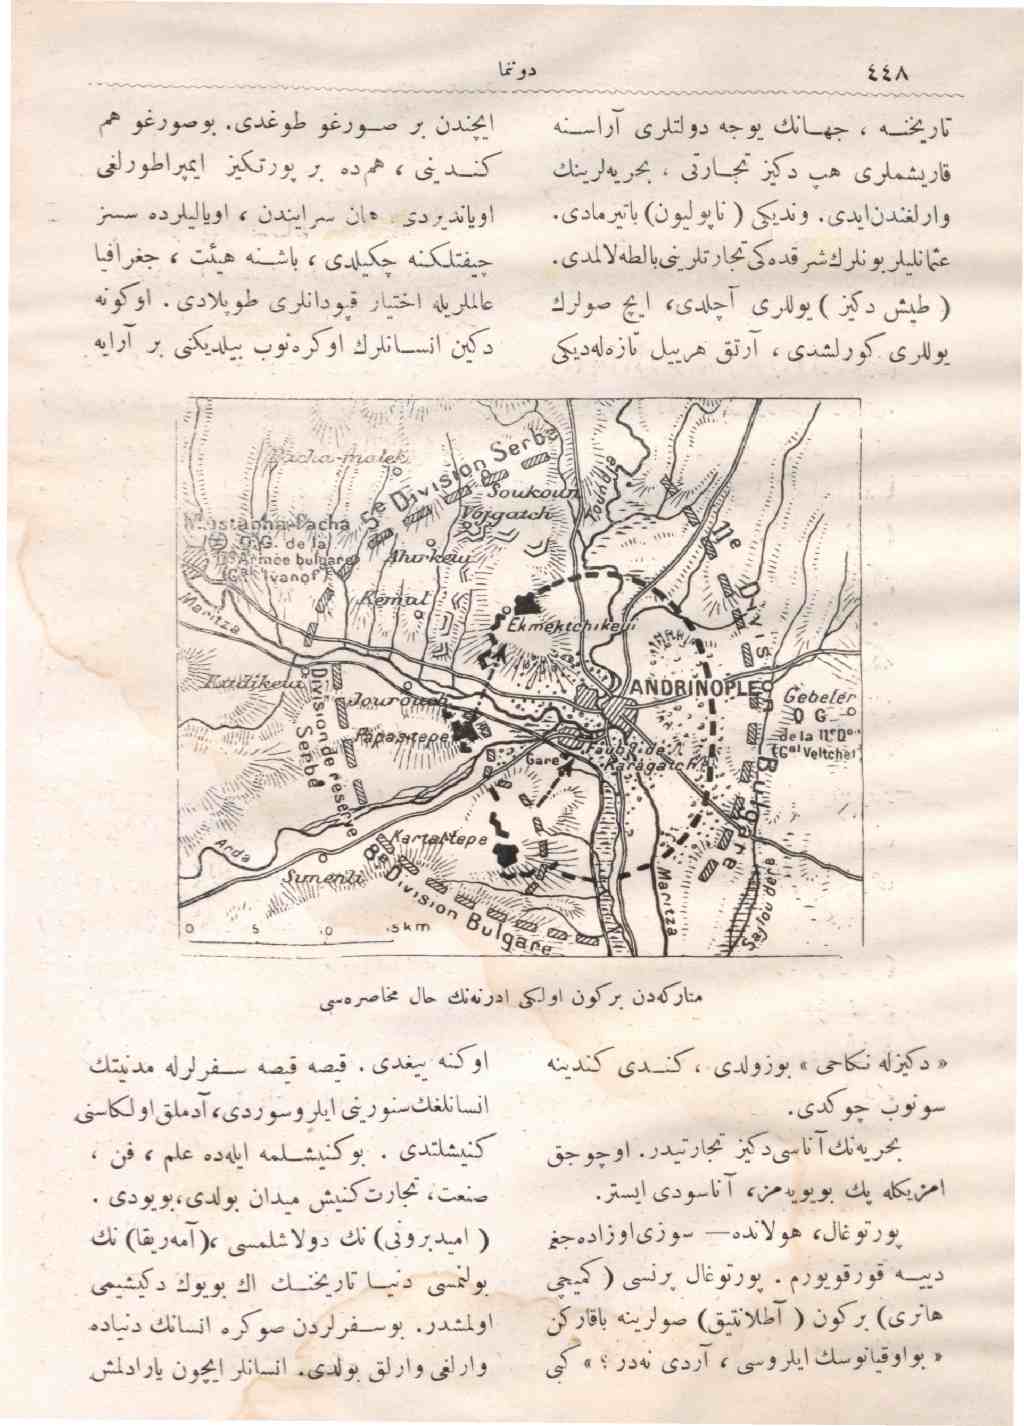 ٤٤٨
دوننما
تاریخنـه ، جهـانك یوجه دولتلری آراسـنه
قاریشملری هپ دكیز تجـارتی ، بحریه لرینك
وارلغندن ایدی. وندیكی ( ناپولیون) باتیرمادی.
عثمانلیلر بونلرك شرقده كی تجارتلرینی بالطه لالمدی.
( طیش دكیز ) یوللری آچلدی، ایچ صولرك
یوللری كورلشدی ، آرتق هرییل تازه له دیكی
ایچندن بر صـورغو طوغدی. بوصورغو هم
كنـدینی ، هم ده بر پورتكیز ایمپراطورلغی
اویاندیردی. همان سراییندن ، اویالیلرده سسز
چیفتلكنه چكیلدی ، باشـنه هیئت ، جغرافیا
عالملریله اختیار قپودانلری طوپلادی . اوكونه
دكین انسـانلرك اوكره نوب بیلدیكنی بر آرایه
Pacha-malek
5e Division Serbe
Soukoun
Vojgatch
Toundja
11e Division Bulgare
Mustapha-Pacha
Q.G. de la
IIe Armée bulgare
(Gal Ivanof)
Ahurkeui
Kemal
Maritza
Ekmektchikeui
Kadijkeui
Jourouch
Papas-tepe
ANDRINOPLE
Gebeler
Q G
de la 11e Don
(Gal Veltchef)
Faubg de
Karagatch
Gare
Division de réserve
Serbe
Arda
Kartal-tepe
Simenli
8e Division Bulgare
Maritza
Saylou dere
0 5 10 15km
متاركه دن بركون اولكی ادرنه نك حال محاصره سی
« دكیزله نكاحی » بوزولدی ، كنـدی كندینه
سونوب چوكدی.
بحریه نك آناسی دكیز تجارتیدر. اوچوجق
امزیكله پك بویویه مز، آناسودی ایستر.
پورتوغال، هولانده— سوزی اوزاده جغم
دییـه قورقویورم . پورتوغال پرنسی ( كمیجی
هانری) بركون ( آطلانتیق) صولرینه باقاركن
« بواوقیانوسك ایلروسی ، آردی نه در ؟ » كبی
اوكنه ییغدی . قیصه قیصه سـفرلرله مدنیتك
انسانلغك سنورینی ایلروسوردی، آدملق اولكاسنی
كنیشلتدی . بوكنیشـلمه ایله ده علم ، فن ،
صنعت، تجارت كنیش میدان بولدی، بویودی .
( امیدبرونی) نك دولاشلمسی ،(آمه ریقا) نك
بولنمسی دنیـا تاریخنـك اك بویوك دكیشیمی
اولمشدر. بوسـفرلردن صوكره انسانك دنیاده
وارلغی وارلق بولدی. انسانلر ایچون یارادلمش